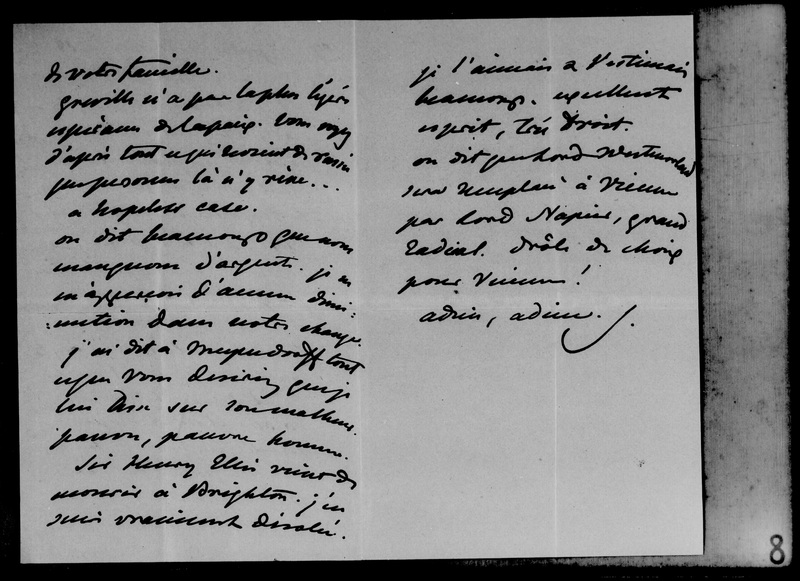 de votre famille.
Greville n'a pas la plus légère
espérance de la paix. Vous voyez
d'après tout ce qui revient de
que personne là n'y rêve...
a hopeless case.
on dit beaucoup que nous
manquons d'argent. je ne
m'apperçois d'aucun dimi-
:nution dans notre change.
j'ai dit à Meyendorff tout
ce que vous desiriez que je
lui dise sur son malheur.
pauvre, pauvre homme.
Sir Henry Ellis vient de
mourir à Brighton. j'en
suis vraiment désolée.
je l'aimais & l'estimais
beaucoup. excellent
esprit, très droit.
on dit que Lord Westmorland
sera remplacé à Vienne
par Lord Napier, grand
radical. drôle de choix
pour Vienne!
adieu, adieu.
8